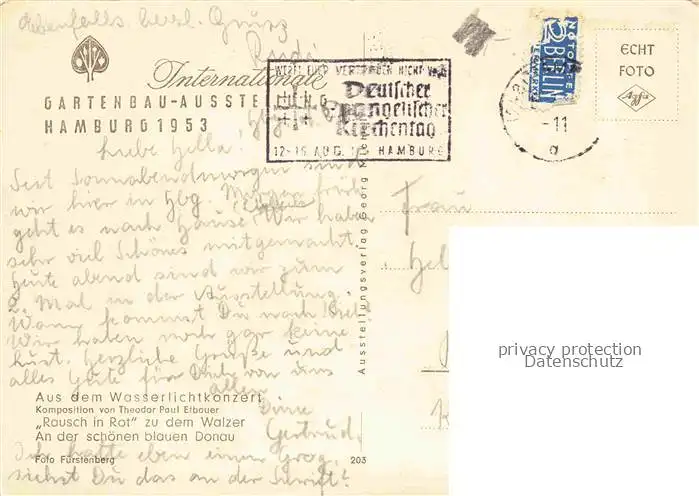 Ebenfalls herzl. Gruß
Rudi
Internationale
GARTENBAU-AUSSTELLUNG
HAMBURG 1953
WERFT EUER VERTRAUEN NICHT WEG
Deutscher
Evangelischer
Kirchentag
12-16. AUG. HAMBURG
NOTOPFER
2 BERLIN
STEUERMARKE
-11
g
ECHT
FOTO
Agfa
Liebe Hella!
Seit Sonnabendmorgen sind
wir hier in Hbg. Morgen früh
geht es nach Hause! Wir haben
sehr viel Schönes mitgemacht.
Heute abend sind wir zum
2. Mal in der Ausstellung.
Wann kommst Du nach Kiel?
Wir haben noch gar keine
Lust. Herzliche Grüße und
alles Gute für von uns
allen
Deine
Gertrud.
Ich hatte eben einen Grog,
siehst Du das an der Schrift?
Aus dem Wasserlichtkonzert
Komposition von Theodor Paul Etbauer
„Rausch in Rot" zu dem Walzer
An der schönen blauen Donau
Foto Fürstenberg 203
Ausstellungsverlag Georg
Frau
privacy protection
Datenschutz